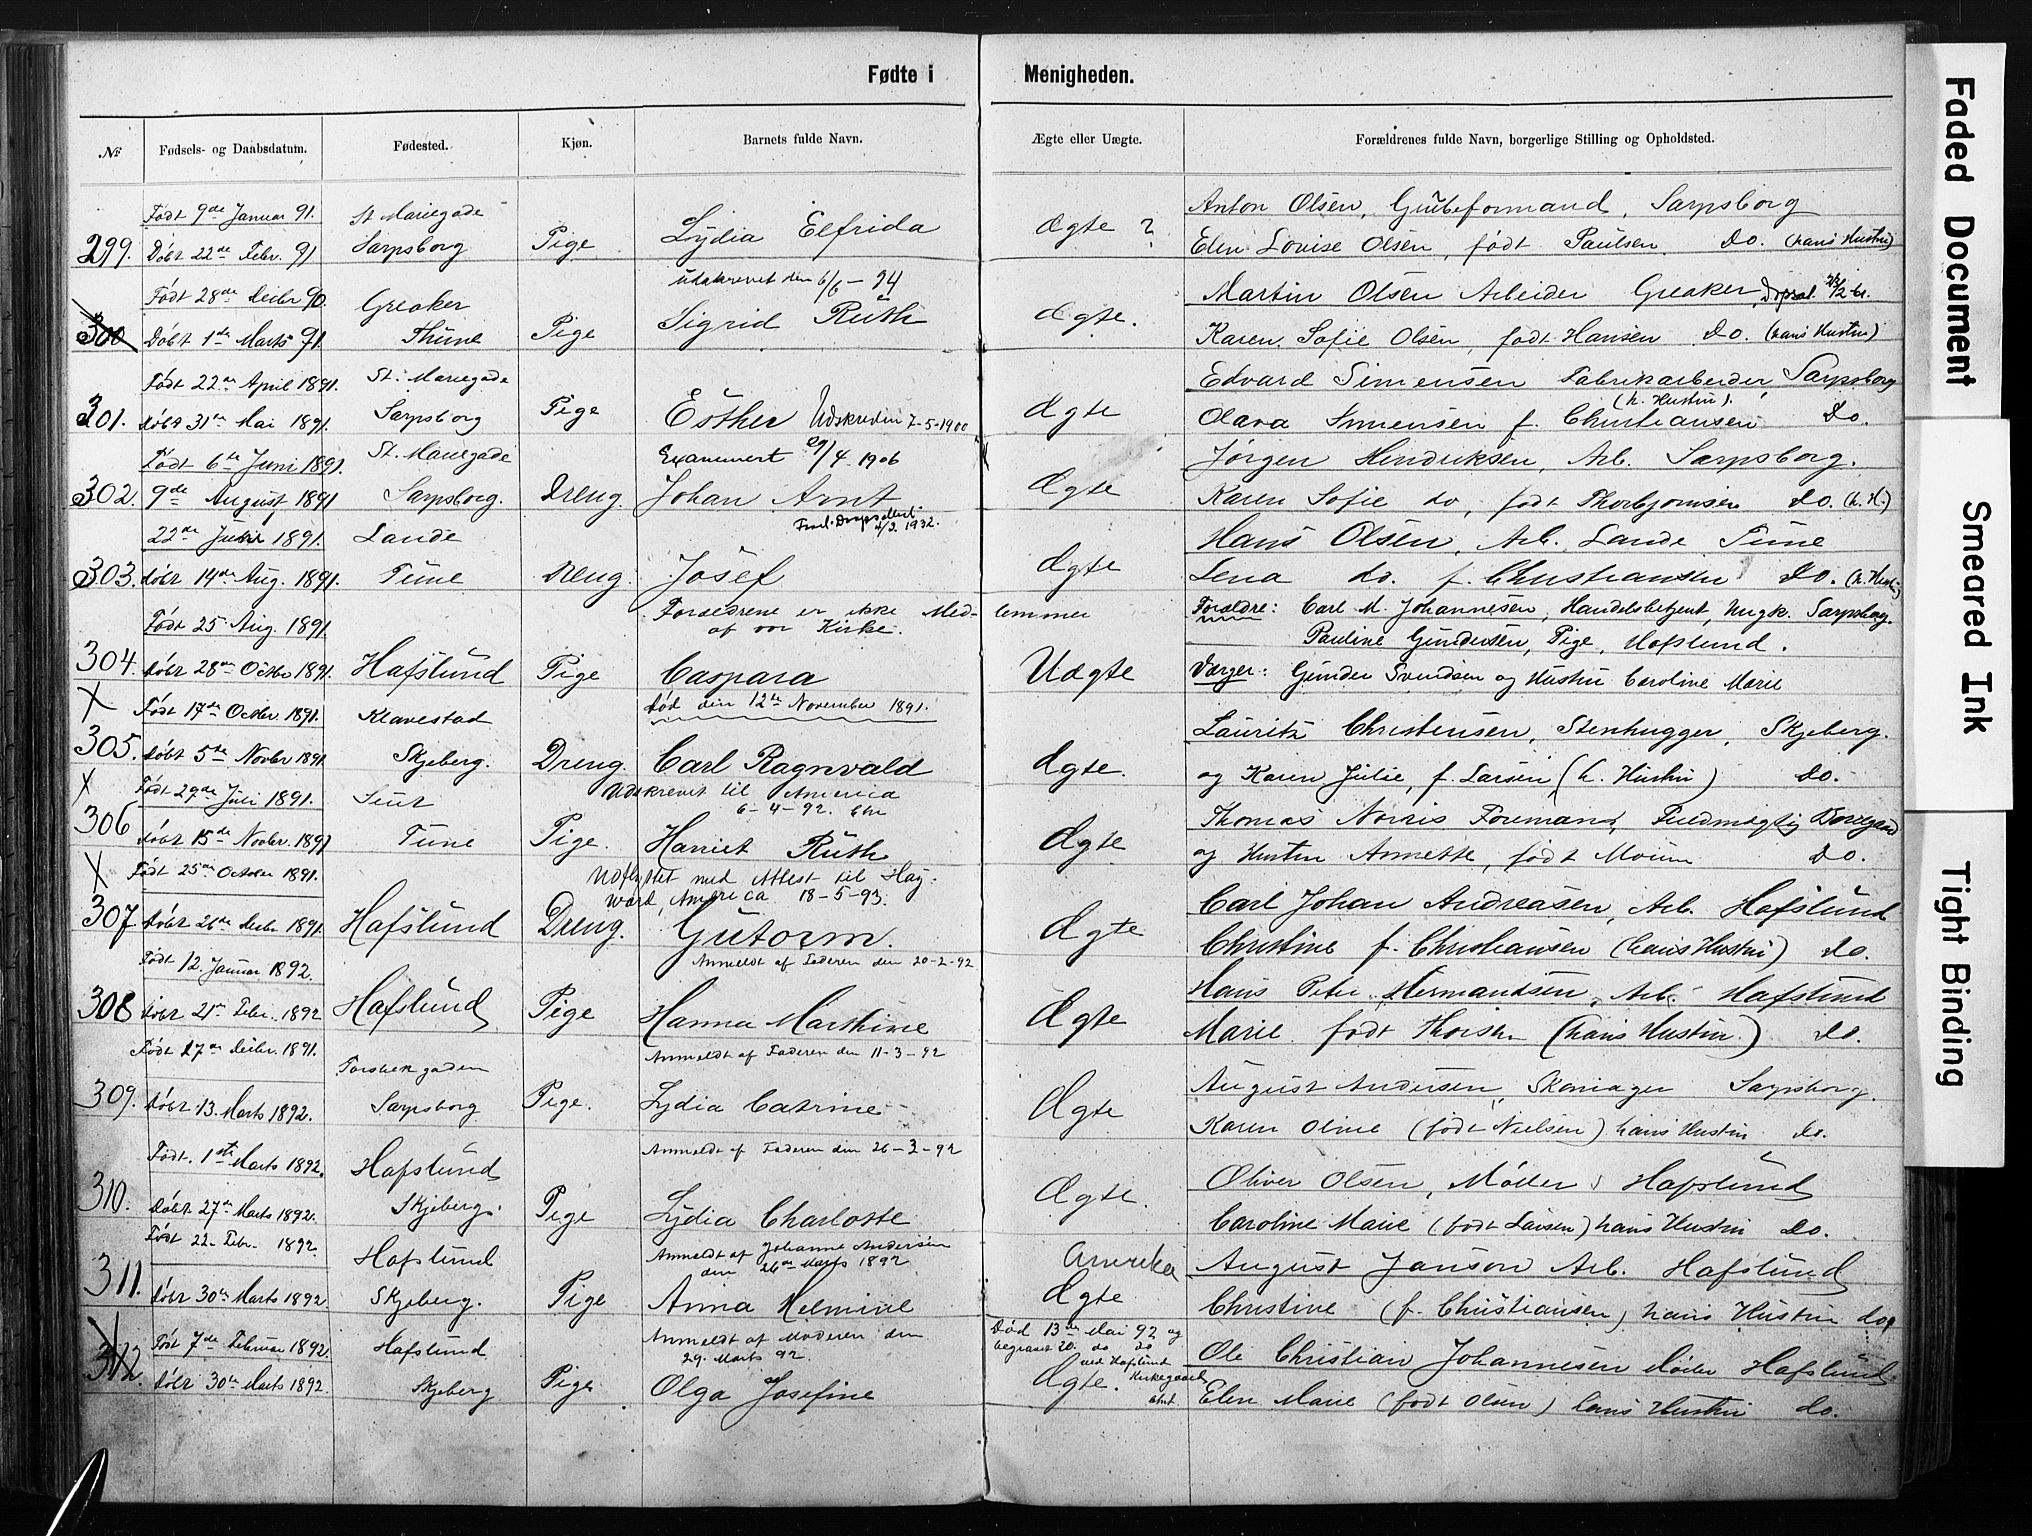 Fødte i Menigheden.
№ Fødsels- og Daabsdatum. Fødested. Kjøn. Barnets fulde Navn. Ægte eller Uægte. Forældrenes fulde Navn, borgerlige Stilling og Opholdsted.
Født 9de Januar 91. St. Mariegade Anton Olsen, Grubeformand, Sarpsborg
299. Døbt 22de Febr. 91 Sarpsborg Pige Lydia Elfrida Ægte ? Elen Lovise Olsen, født Paulsen. Do. (hans Hustru)
udskrevet den 6/6 - 94
Født 28de Decbr 90. Greaker Martin Olsen Arbeider Greaker
300 Døbt 1ste Marts 91. Thune Pige Sigrid Ruth Ægte. Karen Sofie Olsen, født Hansen Do. (hans Hustru)
Født 22de April 1891. St. Mariegade Edvard Simensen Fabrikarbeider, Sarpsborg
301. Døbt 31te Mai 1891. Sarpsborg Pige Esther Udskreden 7-5-1900 Ægte Olava Simensen f. Christiansen (h. Hustru). Do.
Født 6te Juni 1891. St. Mariegade Examinert 29/4-1906 Jørgen Hendriksen, Arb. Sarpsborg.
302. 9de August 1891 Sarpsborg. Dreng. Johan Arnt Ægte Karen Sofie do, født Thorbjørnsen Do. (h. H.)
1932.
22de 1891. Lande Hans Olsen, Arb. Lande Tune
303. Døbt 14de Aug. 1891. Tune Dreng. Josef Ægte Lena do. f. Christiansen Do.
Født 25 Aug. 1891. Forældrene er ikke Medlemmer af vor Kirke. Forældre: Carl M. Johannesen, Handelsbetjent, Ungk. Sarpsborg.
Pauline Gundersen, Pige, Hafslund.
304. Døbt 28de Octbr 1891. Hafslund Pige Caspara Uægte Værger: Gunder Svendsen og Hustru Caroline Marie
død den 12te November 1891.
X Født 17de Octbr. 1891. Klavestad Lauritz Christensen, Stenhugger, Skjeberg.
305. Døbt 5te Novbr 1891 Skjeberg. Dreng. Carl Ragnvald Ægte. og Karen Julie, f. Larsen, (h. Hustru) Do.
Udskrevet til America
6-4-92.
X Født 29de Juli 1891. Thomas Norris Foremand, Fuldmægtig Borregaard
306 Døbt 15de Novbr. 1891 Tune Pige. Harriet Ruth Ægte og Hustru Annette, født Do.
Udflyttet med Attest til Hayward, America 18-5-93.
X Født 25de October 1891. Carl Johan Andreasen, Arb. Hafslund
307. Døbt 26de Decbr 1891. Hafslund Dreng. Gutorm. Ægte Christine f. Christiansen (hans Hustru) Do.
Født 12. Januar 1892. Anmeldt af Faderen den 20-2-92 Hans Peter Hermandsen, Arb. Hafslund
308 Døbt 21de Febr. 1892 Hafslund Pige Hanna Marthine Ægte Marie født (hans Hustru.) Do.
Født 27de Decbr. 1891. Anmeldt af Faderen den 11-3-92
August Andersen, Skomager Sarpsborg.
309. Døbt 13. Marts 1892. Sarpsborg Pige. Lydia Catrine Ægte Karen Oline (født Nielsen) hans Hustru Do.
Født. 1ste Marts 1892. Hafslund Anmeldt af Faderen den 26-3-92 Oliver Olsen, Møller Hafslund
310. Døbt 27de Marts 1892. Skjeberg. Pige Lydia Charlotte Ægte. Caroline Marie (født Larsen) hans Hustru Do.
Født 22 Febr. 1892. Hafslund Anmeldt af Johanne Andersen den 26de Marts 1892 Amerika August Janson Arb. Hafslund
311. Døbt 30te Marts 1892. Skjeberg. Pige Anna Helmine Ægte Christine (f. Christiansen) hans Hustru do.
Født 7de Februar 1892. Hafslund Anmeldt af Moderen den 29. Marts 92. Død 13de Mai 92 og begravet 20. do do ved Hafslund Kirkegaard Ole Christian Johannesen Møller Hafslund.
312. Døbt 30te Marts 1892. Skjeberg Pige Olga Josefine Ægte. Elen Marie (født Olsen) hans Hustru do.
Faded Document
Smeared Ink
Tight Binding